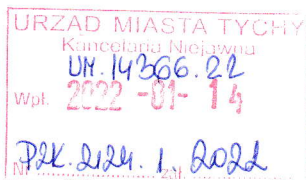 URZĄD MIASTA TYCHY
Kancelaria Niejawna
UM.14366.22
Wpł. 2022 -01- 14
P2K.2124.1.2022
Nr zał.